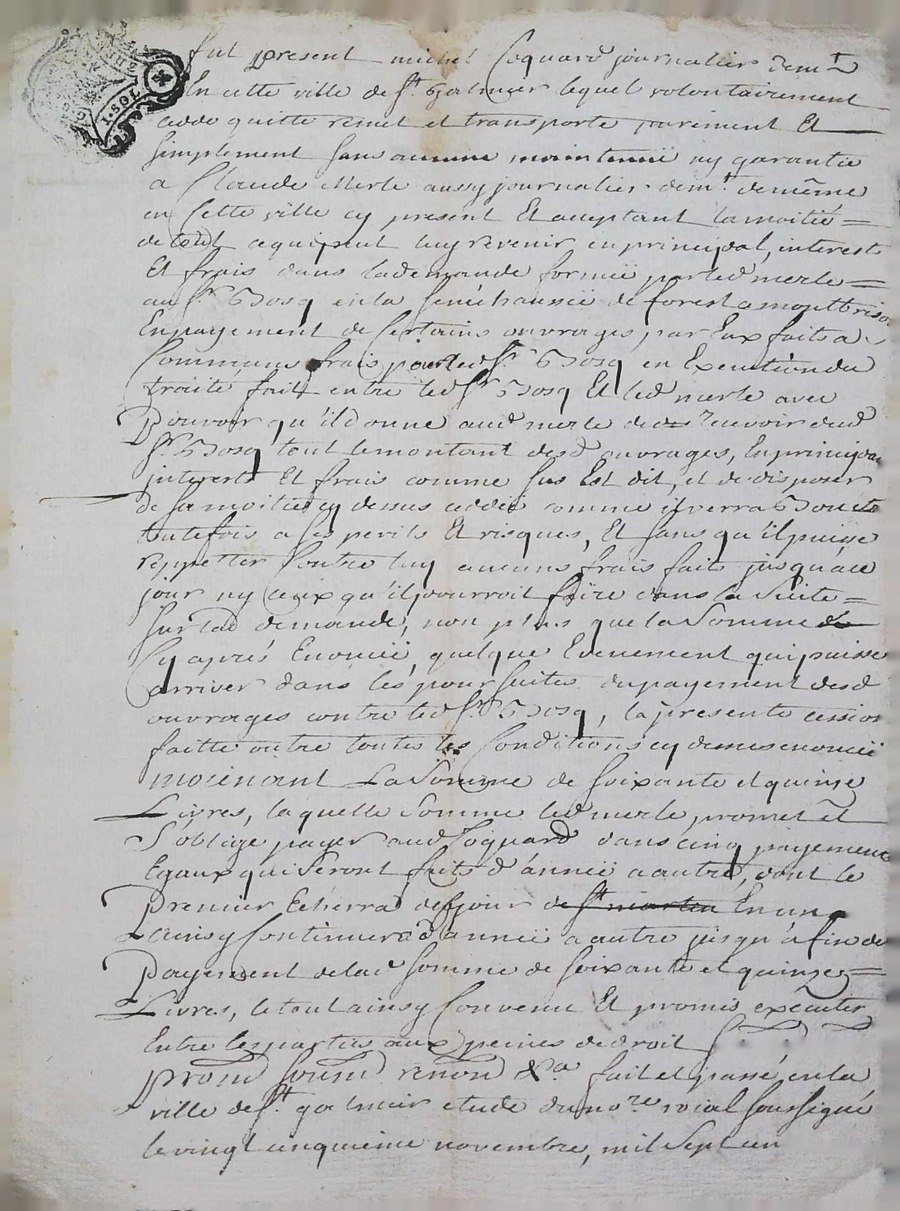 1.SOL
fut present michel Coquard journalier dem.t
En cette ville de S.t Galmier lequel volontairement
cedde quitte remet et transporte purement Et
simplement sans aucune maintenüe ny garantie
a Claude Merle aussy journalier dem.t de même
en Cette ville cy present Et aceptant la moitié =
de tout cequi peut luy revenir en principal, interests
Et frais dans la demande formée par led merle =
au S.r Bosq en la senéchaussée de forest a montbrison
En payement de Certains ouvrages par Eux faits a
Communs frais pour led S.r Bosq en Execution du
traité fait entre led S.r Bosq Et led merle avec
Pouvoir qu'il donne aud merle de recevoir dud
S.r Bosq tout le montant desd ouvrages, En principal
interests Et frais comme sus Est dit, et de disposer
de sa moitié cy dessus ceddée comme il verra Bon etc
toutefois a ses perils Et risques, Et sans qu'il puisse
reppetter Contre luy aucuns frais faits jusqu'a ce
jour ny Ceux qu'il pourroit faire dans la suitte =
sur lad demande, non plus que la somme
Cy aprés Enoncée, quelque Evenement qui puisse
arriver dans les poursuites du payement desd
ouvrages contre led S.r Bosq, la presente cession
faitte outre toutes les Conditions cy dessus enoncée
moienant La Somme de soixante et quinze
Livres, laquelle Somme led merle, promet et
S'oblige payer aud Coquard dans cinq payements
Egaux qui Seront faits d'année a autre, dont le
Premier Echerra de S.t martin En un
Lainsy Continuera d'année a autre jusqu'à fin de
Payement delad somme de soixante et quinze =
Livres, le tout ainsy Convenu Et promis executer
Entre les parties aux peines de droit
prom soum renon &a fait et passé en la
ville de S.t galmier etude du no.re roial soussigné
le vingt cinquieme novembre, mil Sept cen